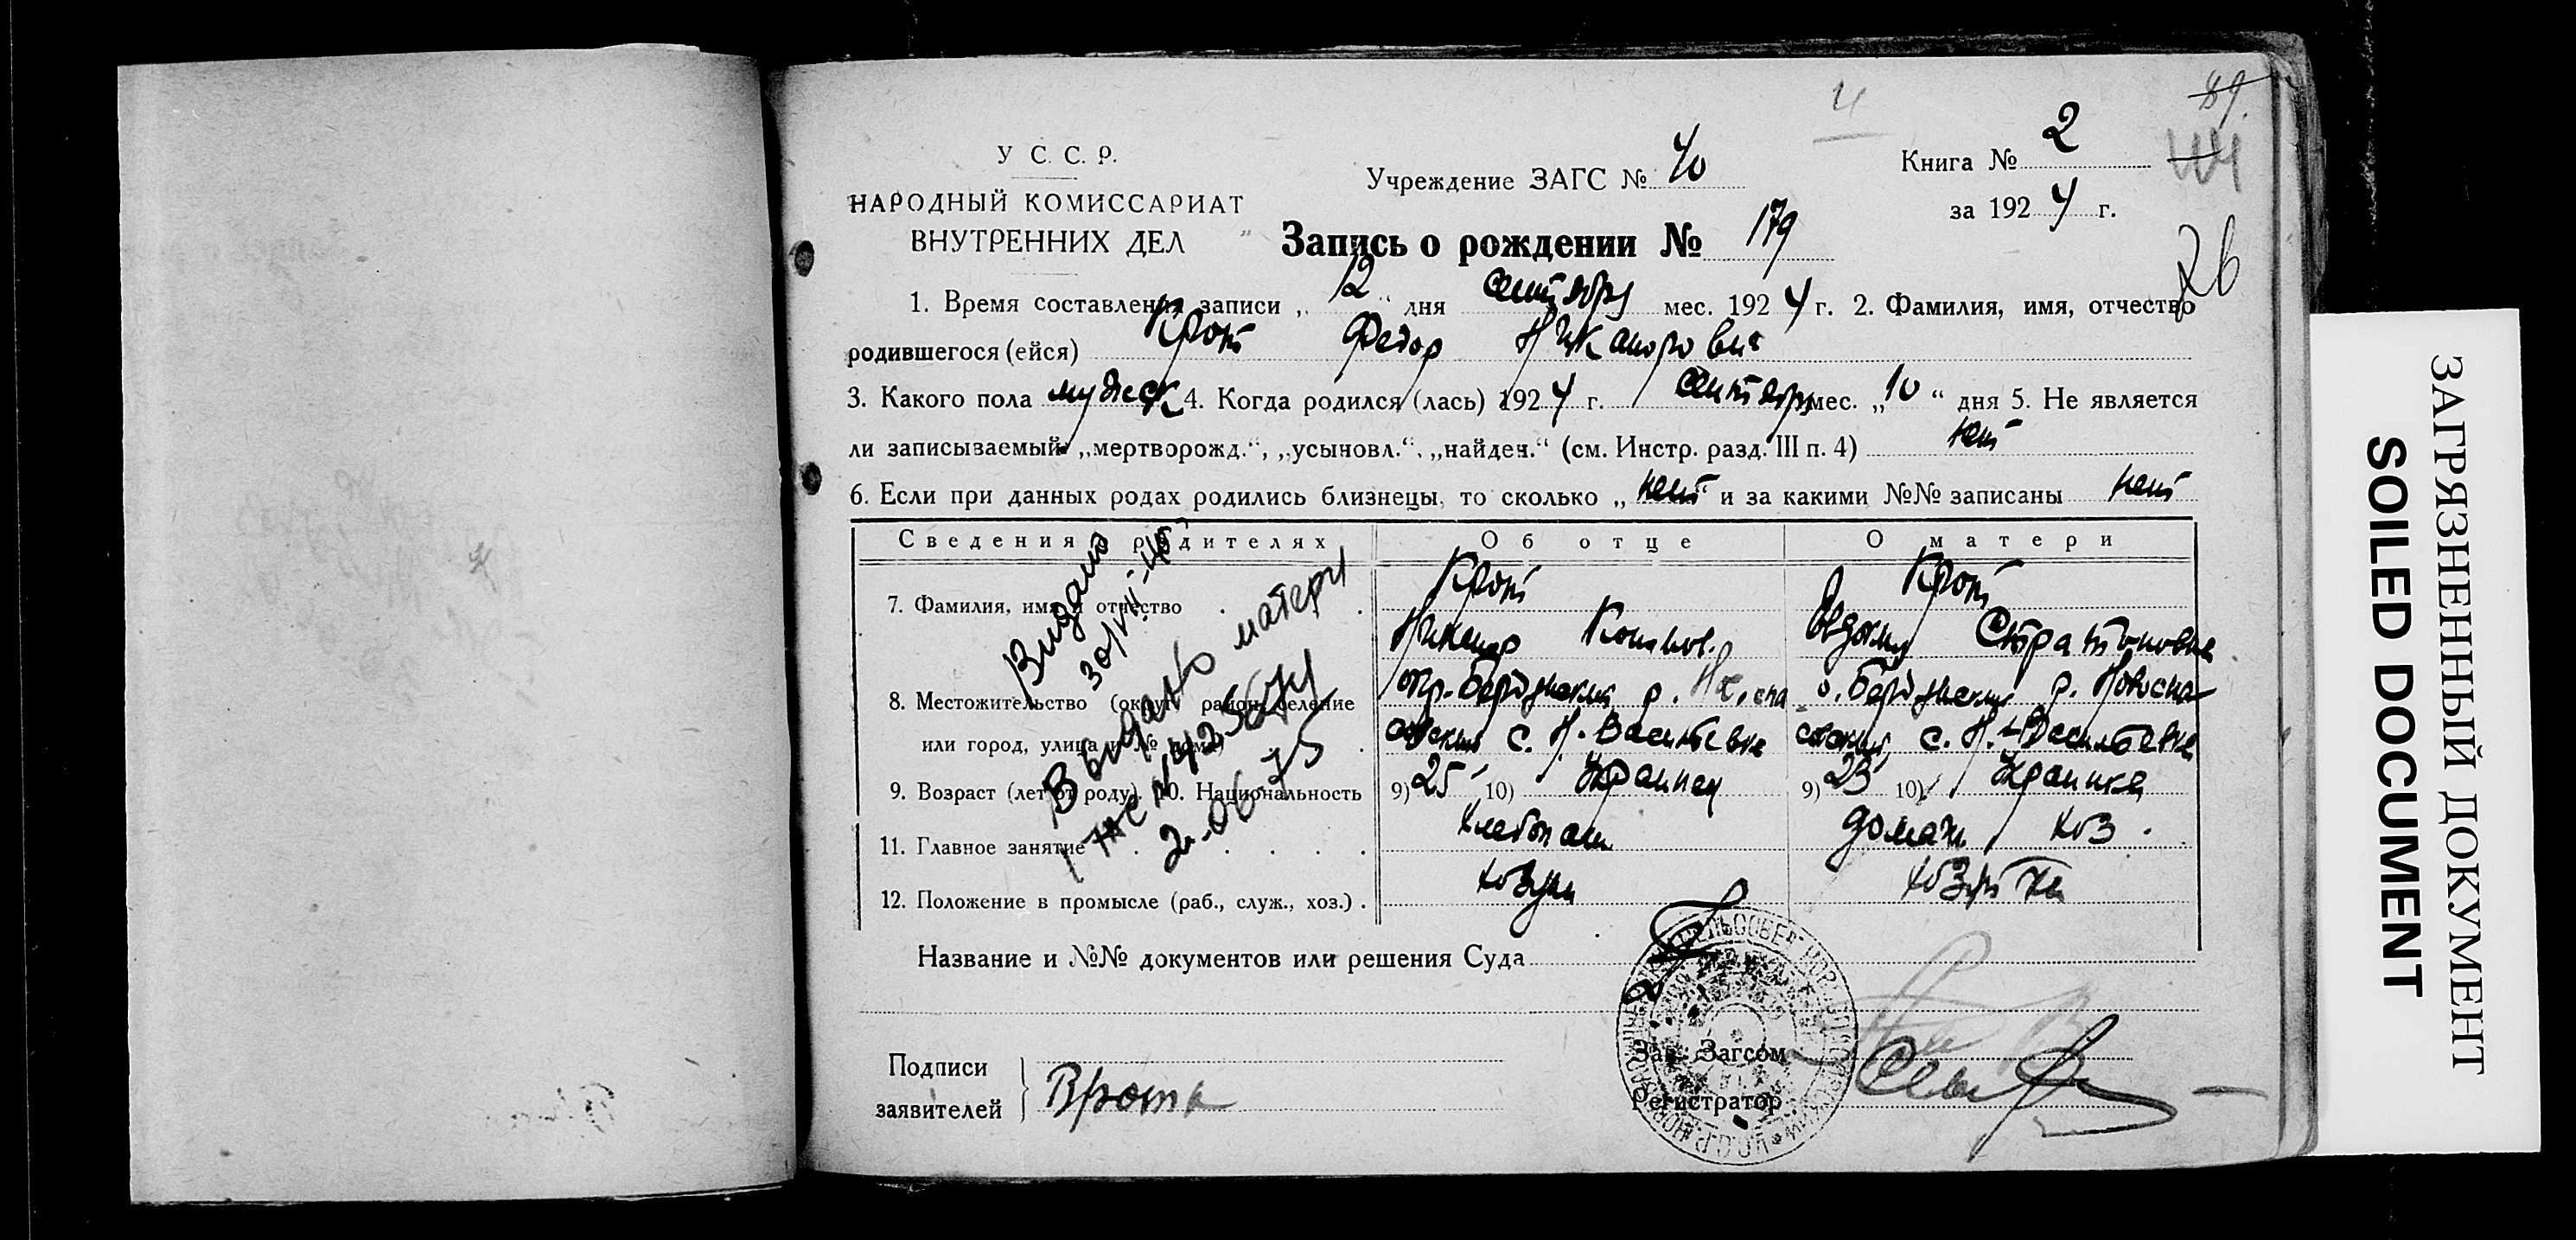 4
89.
У С. С. Р.
НАРОДНЫЙ КОМИССАРИАТ
ВНУТРЕННИХ ДЕЛ
Учреждение ЗАГС № 40
Книга № 2
за 1924 г.
26
Запись о рождении № 179
1. Время составления записи „12“ дня сентября мес. 1924 г. 2. Фамилия, имя, отчество
родившегося (ейся) Крот Федор Никанорович
3. Какого пола мужск 4. Когда родился (лась) 1924 г. сентября мес. „10“ дня 5. Не является
ли записываемый „мертворожд.“, „усыновл.“, „найден.“ (см. Инстр. разд. III п. 4) нет
6. Если при данных родах родились близнецы, то сколько „нет“ и за какими №№ записаны нет
Сведения о родителях Об отце О матери
7. Фамилия, имя и отчество Крот Крот
Никанор Евдокия Стратоновна
8. Местожительство (округ, район, селение окр. Бердянский р. о. Бердянский р. Новоспа-
или город, улица и № дома) совский с. Н. Васильевка совский, с. Н. Васильевка
9. Возраст (лет от роду). 10. Национальность 9) 25 10) Украинец 9) 23 10) Украинка
11. Главное занятие Хлебопаш. домаш. хоз.
12. Положение в промысле (раб., служ., хоз.) хозяин хозяйка
Видано
Выдано матери
2-06-75
Название и №№ документов или решения Суда
Подписи
заявителей
Зав. Загсом
Регистратор
ЗАГРЯЗНЕННЫЙ ДОКУМЕНТ
SOILED DOCUMENT